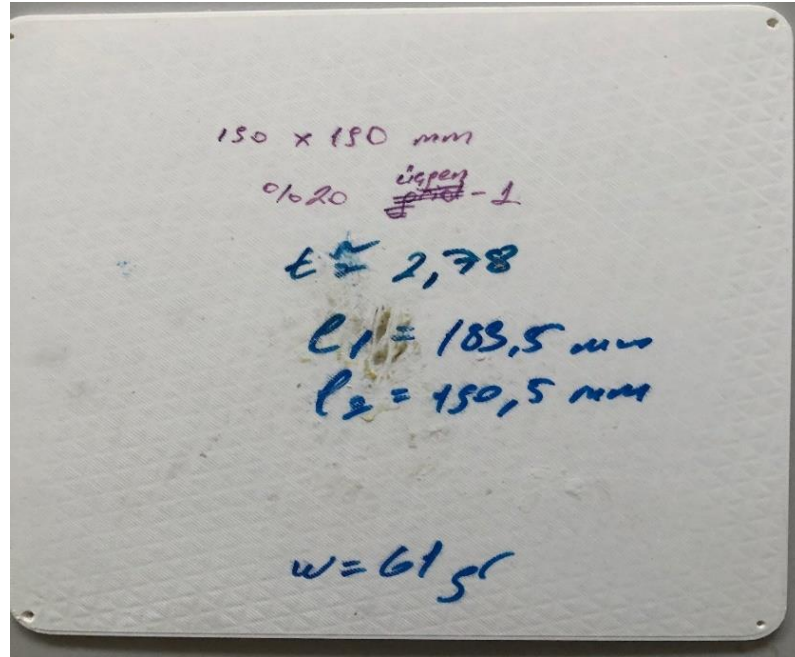 190 x 190 mm
%20 üçgen - 1
t ≅ 2,78
l1 = 189,5 mm
l2 = 190,5 mm
w = 61 gr